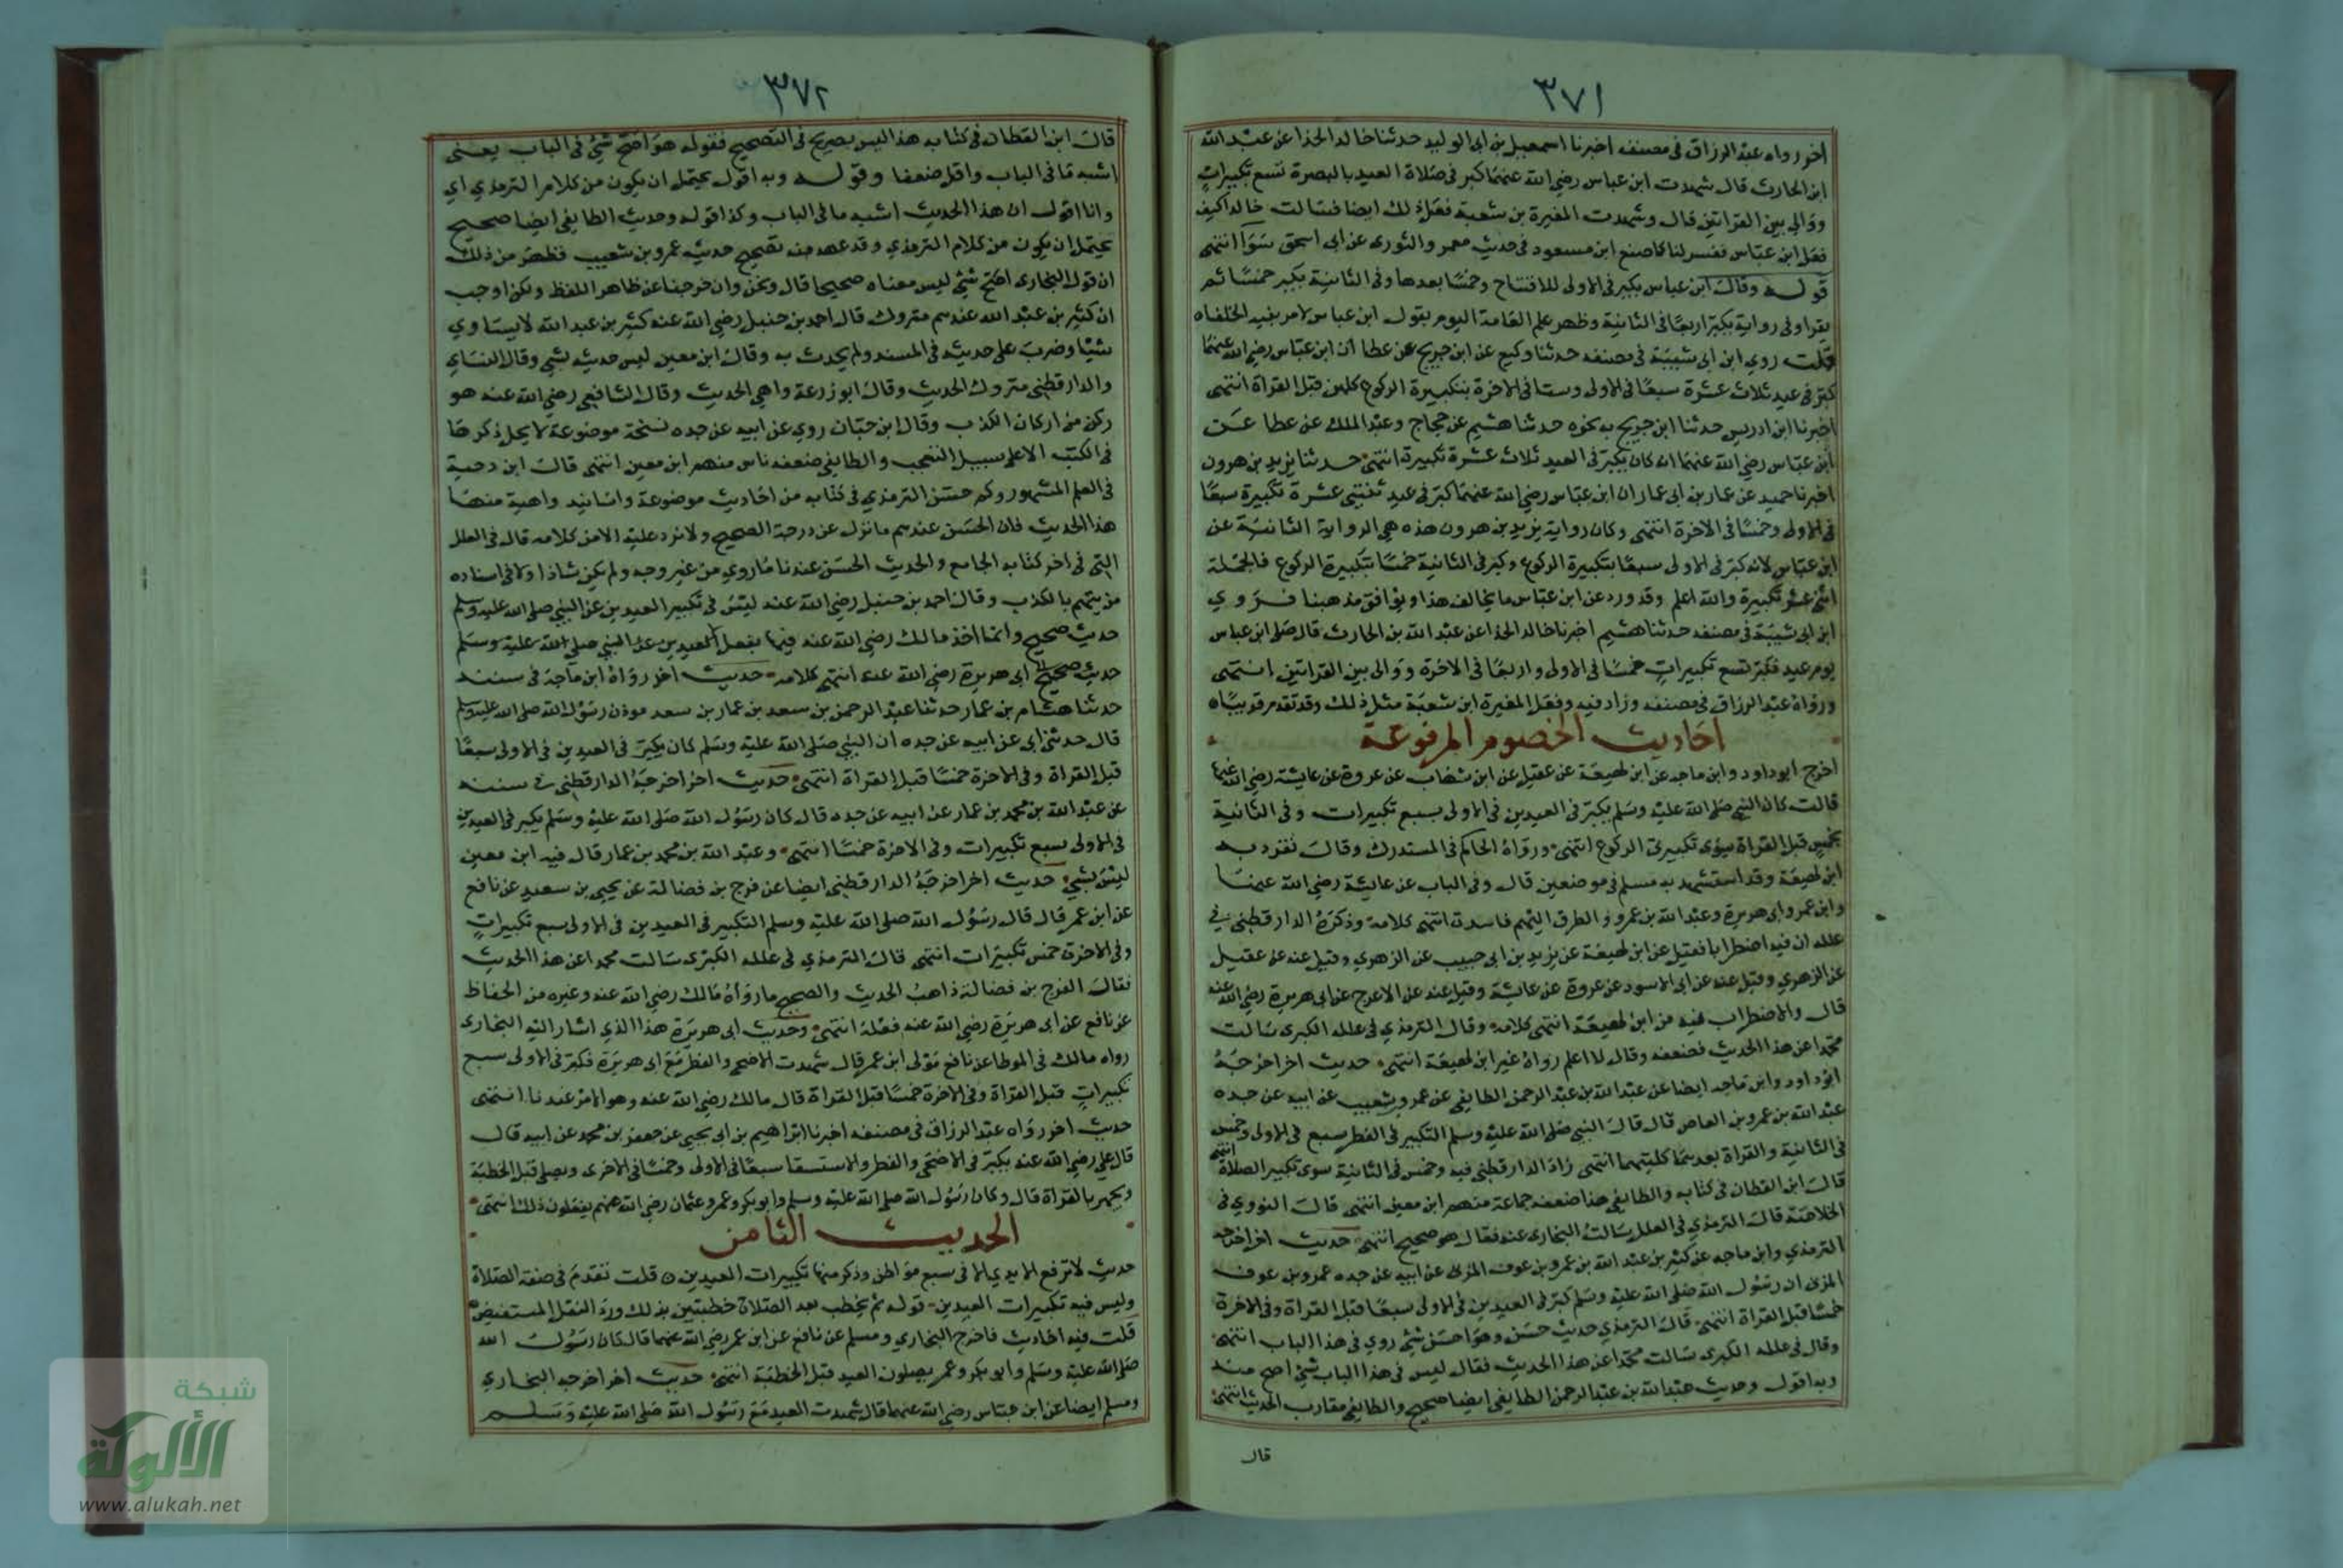 ٣٧١
اخر رواه عبد الرزاق في مصنفه اخبرنا اسمعيل بن ابي الوليد حدثنا خالد الحذا عن عبد الله
ابن الحارث قال شهدت ابن عباس رضي الله عنهما كبر في صلاة العيد بالبصرة تسع تكبيرات
ووالى بين القراتين قال وشهدت المغيرة بن شعبة فعل ذلك ايضا فسالت خالدا كيف
فعل ابن عباس ففسر لنا كما صنع ابن مسعود في حديث معمر والثوري عن ابي اسحق سوا انتهى
قوله وقال ابن عباس يكبر في الاولى للافتتاح وخمسا بعدها وفي الثانية يكبر خمسا ثم
يقرا وفي رواية يكبر اربعا في الثانية وظهر عمل العامة اليوم بقول ابن عباس لامر بنيه الخلفاه
قلت روي ابن ابي شيبة في مصنفه حدثنا وكيع عن ابن جريج عن عطا ان ابن عباس رضي الله عنهما
كبر في عيد ثلاث عشرة سبعا في الاولى وستا في الاخرة بتكبيرة الركوع كلهن قبل القراة انتهى
اخبرنا ابن ادريس حدثنا ابن جريج به نحوه حدثنا هشيم عن حجاج وعبد الملك عن عطا عن
ابن عباس رضي الله عنهما انه كان يكبر في العيد ثلاث عشرة تكبيرة انتهى حدثنا يزيد بن هرون
اخبرنا حميد عن عمار بن ابي عمار ان ابن عباس رضي الله عنهما كبر في عيد ثنتي عشرة تكبيرة سبعا
في الاولى وخمسا في الاخرة انتهى وكان رواية يزيد بن هرون هذه هي الرواية الثانية عن
ابن عباس لانه كبر في الاولى سبعا بتكبيرة الركوع وكبر في الثانية خمسا بتكبيرة الركوع فالجملة
اثنى عشر تكبيرة والله اعلم وقد ورد عن ابن عباس ما يخالف هذا ويوافق مذهبنا فروي
ابن ابي شيبة في مصنفه حدثنا هشيم اخبرنا خالد الحذا عن عبد الله بن الحارث قال صلى ابن عباس
يوم عيد فكبر تسع تكبيرات خمسا في الاولى واربعا في الاخرة ووالى بين القراتين انتهى
ورواه عبد الرزاق في مصنفه وزاد فيه وفعل المغيرة ابن شعبة مثل ذلك وقد تقدم قريبا
احاديث الخصوم المرفوعة
اخرج ابو داود وابن ماجه عن ابن لهيعة عن عقيل عن ابن شهاب عن عروة عن عايشة رضي الله عنها
قالت كان النبي صلى الله عليه وسلم يكبر في العيدين في الاولى بسبع تكبيرات وفي الثانية
بخمس قبل القراة سوى تكبيرتي الركوع انتهى ورواه الحاكم في المستدرك وقال تفرد به
ابن لهيعة وقد استشهد به مسلم في موضعين قال وفي الباب عن عايشة رضي الله عنها
وابن عمر وابي هريرة وعبد الله بن عمرو والطرق اليهم فاسدة انتهى كلامه وذكره الدارقطني في
علله ان فيه اضطرابا فقيل عن ابن لهيعة عن يزيد بن ابي حبيب عن الزهري وقيل عنه عن عقيل
عن الزهري وقيل عنه عن ابي الاسود عن عروة عن عايشة وقيل عنه عن الاعرج عن ابي هريرة رضي الله عنه
قال والاضطراب فيه من ابن لهيعة انتهى كلامه وقال الترمذي في علله الكبرى سالت
محمدا عن هذا الحديث فضعفه وقال لا اعلم رواه غير ابن لهيعة انتهى حديث اخر اخرجه
ابو داود وابن ماجه ايضا عن عبد الله بن عبد الرحمن الطايفي عن عمرو بن شعيب عن ابيه عن جده
عبد الله بن عمرو بن العاص قال قال النبي صلى الله عليه وسلم التكبير في الفطر سبع في الاولى وخمس
في الثانية والقراة بعدهما كلتيهما انتهى زاد الدارقطني فيه وخمس في الثانية سوى تكبير الصلاة انتهى
قال ابن القطان في كتابه والطايفي هذا ضعفه جماعة منهم ابن معين انتهى قال النووي في
الخلاصة قال الترمذي في العلل سالت البخاري عنه فقال هو صحيح انتهى حديث اخر اخرجه
الترمذي وابن ماجه عن كثير بن عبد الله بن عمرو بن عوف المزني عن ابيه عن جده عمرو بن عوف
المزني ان رسول الله صلى الله عليه وسلم كبر في العيدين في الاولى سبعا قبل القراة وفي الاخرة
خمسا قبل القراة انتهى قال الترمذي حديث حسن وهو احسن شي روي في هذا الباب انتهى
وقال في علله الكبرى سالت محمدا عن هذا الحديث فقال ليس في هذا الباب شي اصح منه
وبه اقول وحديث عبد الله بن عبد الرحمن الطايفي ايضا صحيح والطايفي مقارب الحديث انتهى
قال
٣٧٢
قال ابن القطان في كتابه هذا ليس بصريح في التصحيح فقوله هو اصح شي في الباب يعني
اشبه ما في الباب واقل ضعفا وقوله وبه اقول يحتمل ان يكون من كلام الترمذي اي
وانا اقول ان هذا الحديث اشبه ما في الباب وكذا قوله وحديث الطايفي ايضا صحيح
يحتمل ان يكون من كلام الترمذي وقد عهد منه تصحيح حديث عمرو بن شعيب فظهر من ذلك
ان قول البخاري اصح شي ليس معناه صحيحا قال ونحن وان خرجنا عن ظاهر اللفظ ولكن اوجبه
ان كثير بن عبد الله عندهم متروك قال احمد بن حنبل رضي الله عنه كثير بن عبد الله لا يساوي
شيا وضرب على حديثه في المسند ولم يحدث به وقال ابن معين ليس حديثه بشي وقال النساي
والدارقطني متروك الحديث وقال ابو زرعة واهي الحديث وقال الشافعي رضي الله عنه هو
ركن من اركان الكذب وقال ابن حبان روي عن ابيه عن جده نسخة موضوعة لا يحل ذكرها
في الكتب الا على سبيل التعجب والطايفي ضعفه ناس منهم ابن معين انتهى قال ابن دحية
في العلم المشهور وكم حسن الترمذي في كتابه من احاديث موضوعة واسانيد واهية منها
هذا الحديث فان الحسن عندهم ما نزل عن درجة الصحيح ولا نرد عليه الا من كلامه قال في العلل
التي في اخر كتابه الجامع والحديث الحسن عندنا ما روي من غير وجه ولم يكن شاذا ولا في اسناده
من يتهم بالكذب وقال احمد بن حنبل رضي الله عنه ليس في تكبير العيدين عن النبي صلى الله عليه وسلم
حديث صحيح وانما اخذ مالك رضي الله عنه فيها بفعل العيدين عن النبي صلى الله عليه وسلم
حديث صحيح ابي هريرة رضي الله عنه انتهى كلامه حديث اخر رواه ابن ماجة في سننه
حدثنا هشام بن عمار حدثنا عبد الرحمن بن سعد بن عمار بن سعد موذن رسول الله صلى الله عليه وسلم
قال حدثني ابي عن ابيه عن جده ان النبي صلى الله عليه وسلم كان يكبر في العيدين في الاولى سبعا
قبل القراة وفي الاخرة خمسا قبل القراة انتهى حديث اخر اخرجه الدارقطني في سننه
عن عبد الله بن محمد بن عمار عن ابيه عن جده قال كان رسول الله صلى الله عليه وسلم يكبر في العيدين
في الاولى سبع تكبيرات وفي الاخرة خمسا انتهى وعبد الله بن محمد بن عمار قال فيه ابن معين
ليس بشي حديث اخر اخرجه الدارقطني ايضا عن فرج بن فضالة عن يحيى بن سعيد عن نافع
عن ابن عمر قال قال رسول الله صلى الله عليه وسلم التكبير في العيدين في الاولى سبع تكبيرات
وفي الاخرة خمس تكبيرات انتهى قال الترمذي في علله الكبرى سالت محمدا عن هذا الحديث
فقال الفرج بن فضالة ذاهب الحديث والصحيح ما رواه مالك رضي الله عنه وغيره من الحفاظ
عن نافع عن ابي هريرة رضي الله عنه فعله انتهى وحديث ابي هريرة هذا الذي اشار اليه البخاري
رواه مالك في الموطا عن نافع مولى ابن عمر قال شهدت الاضحى والفطر مع ابي هريرة فكبر في الاولى سبع
تكبيرات قبل القراة وفي الاخرة خمسا قبل القراة قال مالك رضي الله عنه وهو الامر عندنا انتهى
حديث اخر رواه عبد الرزاق في مصنفه اخبرنا ابراهيم بن ابي يحيى عن جعفر بن محمد عن ابيه قال
قال علي رضي الله عنه يكبر في الاضحى والفطر والاستسقا سبعا في الاولى وخمسا في الاخرى ويصلي قبل الخطبة
ويجهر بالقراة قال وكان رسول الله صلى الله عليه وسلم وابو بكر وعمر وعثمان رضي الله عنهم يفعلون ذلك انتهى
الحديث الثامن
حديث لا ترفع الايدي الا في سبع مواطن وذكر منها تكبيرات العيدين قلت تقدم في صفة الصلاة
وليس فيه تكبيرات العيدين قوله ثم يخطب بعد الصلاة خطبتين بذلك ورد النقل المستفيض
قلت فيه احاديث فاخرج البخاري ومسلم عن نافع عن ابن عمر رضي الله عنهما قال كان رسول الله
صلى الله عليه وسلم وابو بكر وعمر يصلون العيد قبل الخطبة انتهى حديث اخر اخرجه البخاري
ومسلم ايضا عن ابن عباس رضي الله عنهما قال شهدت العيد مع رسول الله صلى الله عليه وسلم
شبكة
الألوكة
www.alukah.net